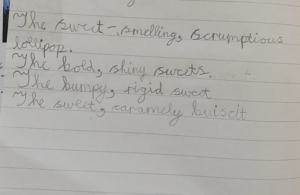 The sweet-smelling, scrumptious
lollipop.
The bold, shiny sweets.
The bumpy, rigid sweet
The sweet, caramely buiscit